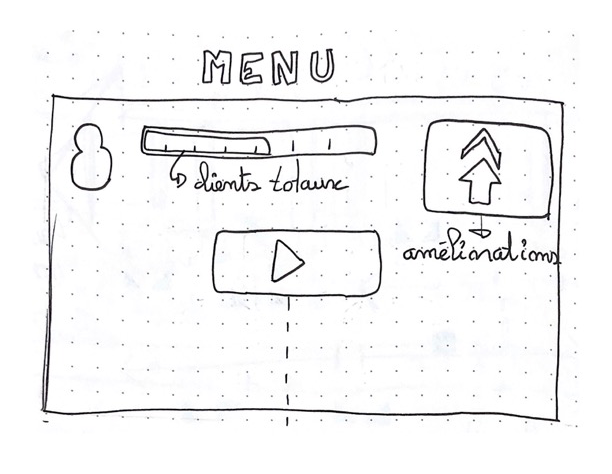 MENU
clients totaux
améliorations